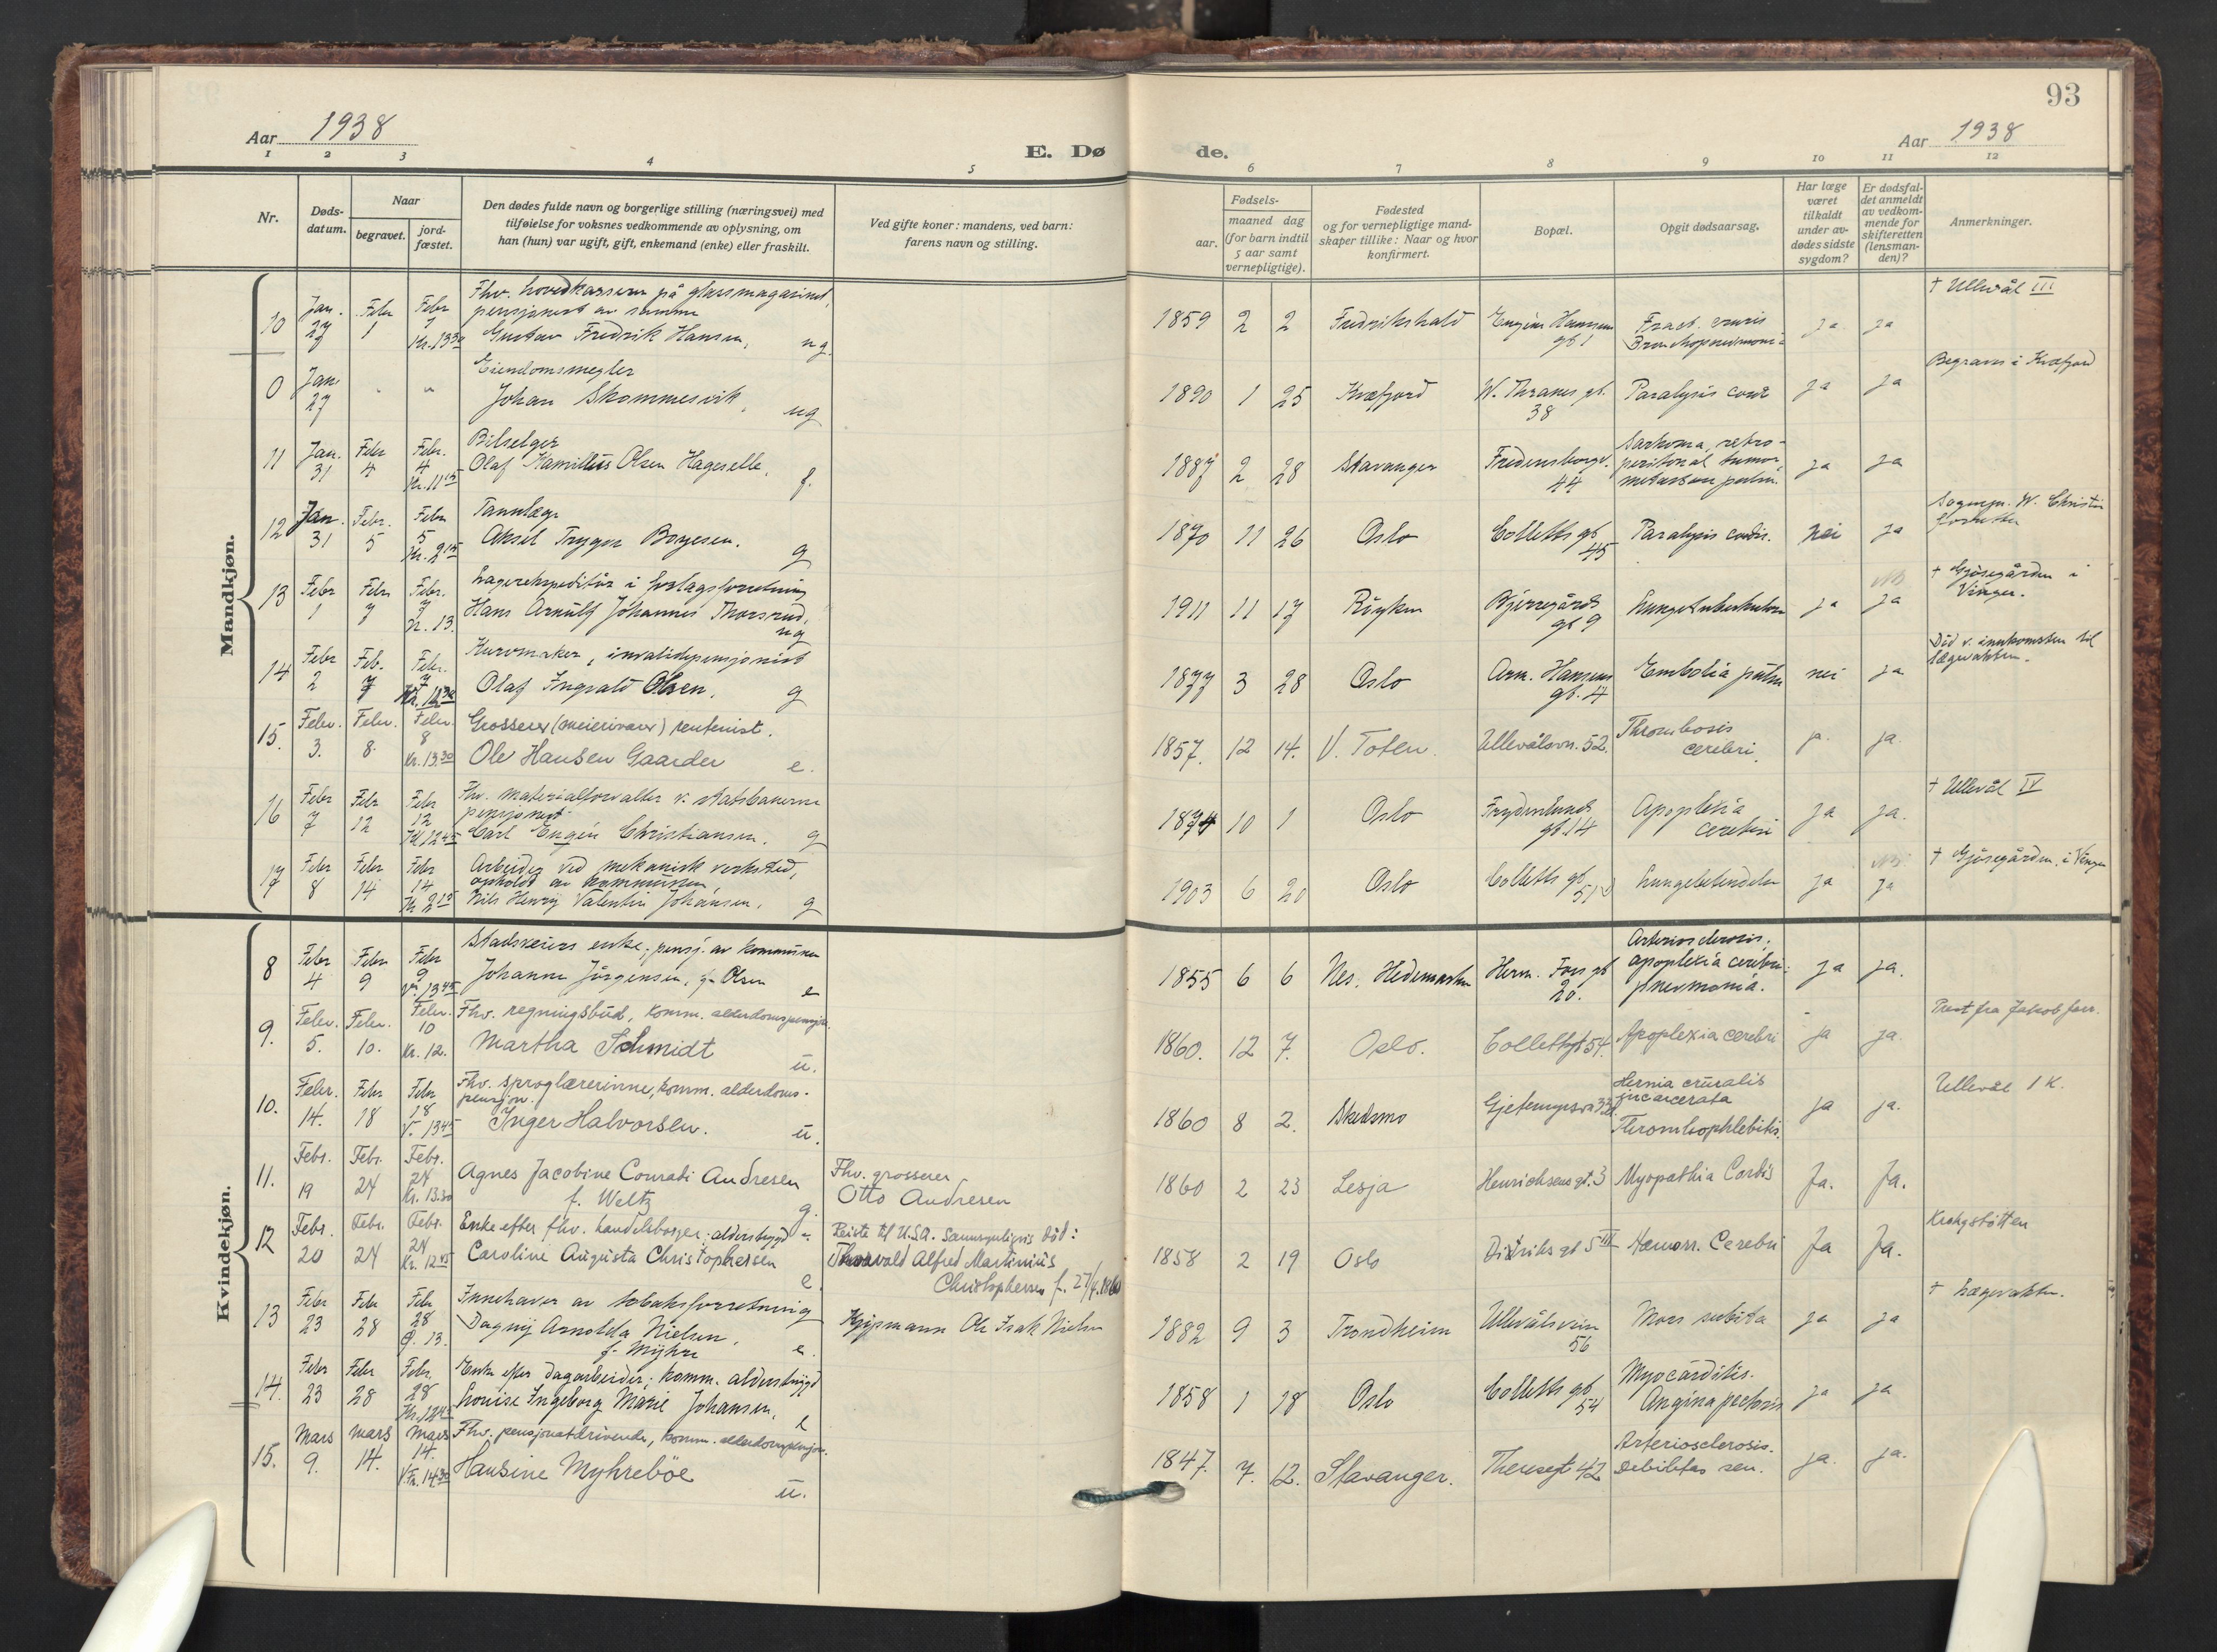 93
Aar 1938
E. Dø
de.
Aar 1938
1 2 3 4 5 6 7 8 9 10 11 12
Nr.
Døds-
datum.
Naar
begravet.
jord-
fæstet.
Den dødes fulde navn og borgerlige stilling (næringsvei) med
tilføielse for voksnes vedkommende av oplysning, om
han (hun) var ugift, gift, enkemand (enke) eller fraskilt.
Ved gifte koner: mandens, ved barn:
farens navn og stilling.
Fødsels-
aar.
maaned dag
(for barn indtil
5 aar samt
vernepligtige).
Fødested
og for vernepligtige mand-
skaper tillike: Naar og hvor
konfirmert.
Bopæl.
Opgit dødsaarsag.
Har læge
været
tilkaldt
under av-
dødes sidste
sygdom?
Er dødsfal-
det anmeldt
av vedkom-
mende for
skifteretten
(lensman-
den)?
Anmerkninger.
Mandkjøn.
10 Jan. 27 Febr 1 Febr 1 Kr. 13 30
Fhv. hovedkasserer på glassmagasinet,
pensjonert av samme
Gustav Fredrik Hansen, ug.
1859 2 2 Fredrikshald Eugénie Hansens gt 1 Fract. cruris Bronchopneumoni ja ja † Ullevål III
0 Jan. 27 " "
Eiendomsmegler
Johan Skommesvik, ug
1890 1 25 Kvæfjord W. Thranes gt. 38 Paralysis cord ja ja Begraves i Kvæfjord
11 Jan. 31 Febr 4 Febr. 4 Kr. 11 15
Bilselger
Olaf Kamillius Olsen Hageselle, f.
1887 2 28 Stavanger Fredensborgv. 44 Sarkoma, retro-
peritoneal tumor, ja ja
12 Jan. 31 Febr. 5 Febr 5 Kr. 2 15
Tannlæge
Aksel Trygve Borgesen. g
1870 11 26 Oslo Colletts gt 45 Paralysis cordis. nei ja Sognepr. W. Christie
forrettet
13 Febr 1 Febr 7 Febr. 7 Kr. 13.
Lagerekspeditør i forlagsforretning
Hans Arnulf Johannes Thorsrud, ug
1911 11 17 Røyken Bjerregårds gt 9 Lungetuberkulose ja ja † Gjøsegården i
Vinger.
14 Febr 2 Feb. 7 Febr. 7 Kr. 12 30
Kurvmaker, invalidepensjonist
Olaf Ingvald Olsen, g
1877 3 28 Oslo Arn. Hansens gt. 4 Embolia pulm nei ja Død v. innkomsten til
lægevakten.
15. Febr. 3. Febr. 8. Febr. 8 Kr. 13.30
Grosserer (meierivarer) rentenist.
Ole Hansen Gaarder e.
1857. 12 14. V. Toten. Ullevålsvn. 52. Thrombosis
cerebri. ja. ja.
16 Febr 7 Febr 12 Febr 12 Kl 12 45
Fhv. materialforvalter v. statsbanerne
pensjonert
Carl Eugén Christiansen. g
1874 10 1 Oslo Frydenlunds gt. 14 Apoplexia
cerebri ja ja. † Ullevål IV
17 Febr 8 Febr 14 Febr 14 Kr 2 15
Arbeider ved mekanisk verksted,
opholdt av kommunen,
Nils Henry Valentin Johansen, g
1903 6 20 Oslo Colletts gt. 51 Lungebetendelse ja ja † Gjøsegården i Vinger
Kvindekjøn.
8 Febr 4 Febr 9 Febr 9 V. 13 45
Stadsreiers enke; pensj. av kommunen
Johanne Jørgensen, f. Olsen e
1855 6 6 Nes, Hedemarken Herm. Foss gt 20. Arteriosclerosis;
apoplexia cerebri;
pneumonia. ja ja.
9. Febr. 5. Febr. 10. Febr. 10 Kr. 12.
Fhv. regningsbud, komm. alderdomspensjon.
Martha Schmidt u.
1860. 12 7. Oslo. Colletts gt 54. Apoplexia cerebri ja ja. Prest fra Jakob
10. Febr. 14. Febr 18 Febr 18 V. 13 45
Fhv. sproglærerinne, komm. alderdoms-
pensjon.
Inger Halvorsen. u.
1860 8 2. Skedsmo Gjetemyrsvn 33 Hernia cruralis
incarcerata
Thrombophlebitis. ja ja. Ullevål I K.
11. Febr. 19 Febr. 24 Febr. 24 Kr. 13.30
Agnes Jacobine Conradi Andresen
f. Weltz g.
Fhv. grosserer
Otto Andresen
1860 2 23 Lesja Henrichsens gt. 3 Myopathia Cordis Ja. Ja.
12 Febr. 20 Febr. 24 Febr. 24 Kr. 12 45
Enke efter fhv. handelsborger; alderstrygd
Caroline Augusta Christophersen e
Reiste til U.S.A. Sannsynligvis død:
Thorvald Alfred Martinius
Christophersen f. 27/4.1860
1858 2 19 Oslo Didriks gt 5 III Hæmorr. Cerebri Ja Ja. Krohgstøtten
13 Febr 23 Febr 28 Febr 28 G. 13.
Innehaver av tobaksforretning
Dagny Arnolda Nielsen,
f. Myhre e.
Kjøpmann Ole Isak Nielsen
1882 9 3 Trondheim Ullevålsveien 56 Mors subita ja ja † Lægevakten.
14. Febr 23 Febr 28 Febr. 28 Kr. 12 45
Enke efter dagarbeider; komm. alderstrygd
Louise Ingeborg Marie Johansen, e
1858 1 18 Oslo Colletts gt 54 Myocarditis.
Angina pectoris ja ja
15. Mars 9. Mars 14. Mars 14. V.Fr. 14 30
Fhv. pensjonatdrivende, komm. alderdomspensjon.
Hansine Myhrebøe u.
1847. 7. 12. Stavanger. Theresegt 42 Arteriosclerosis.
Debilitas sen. ja. ja.